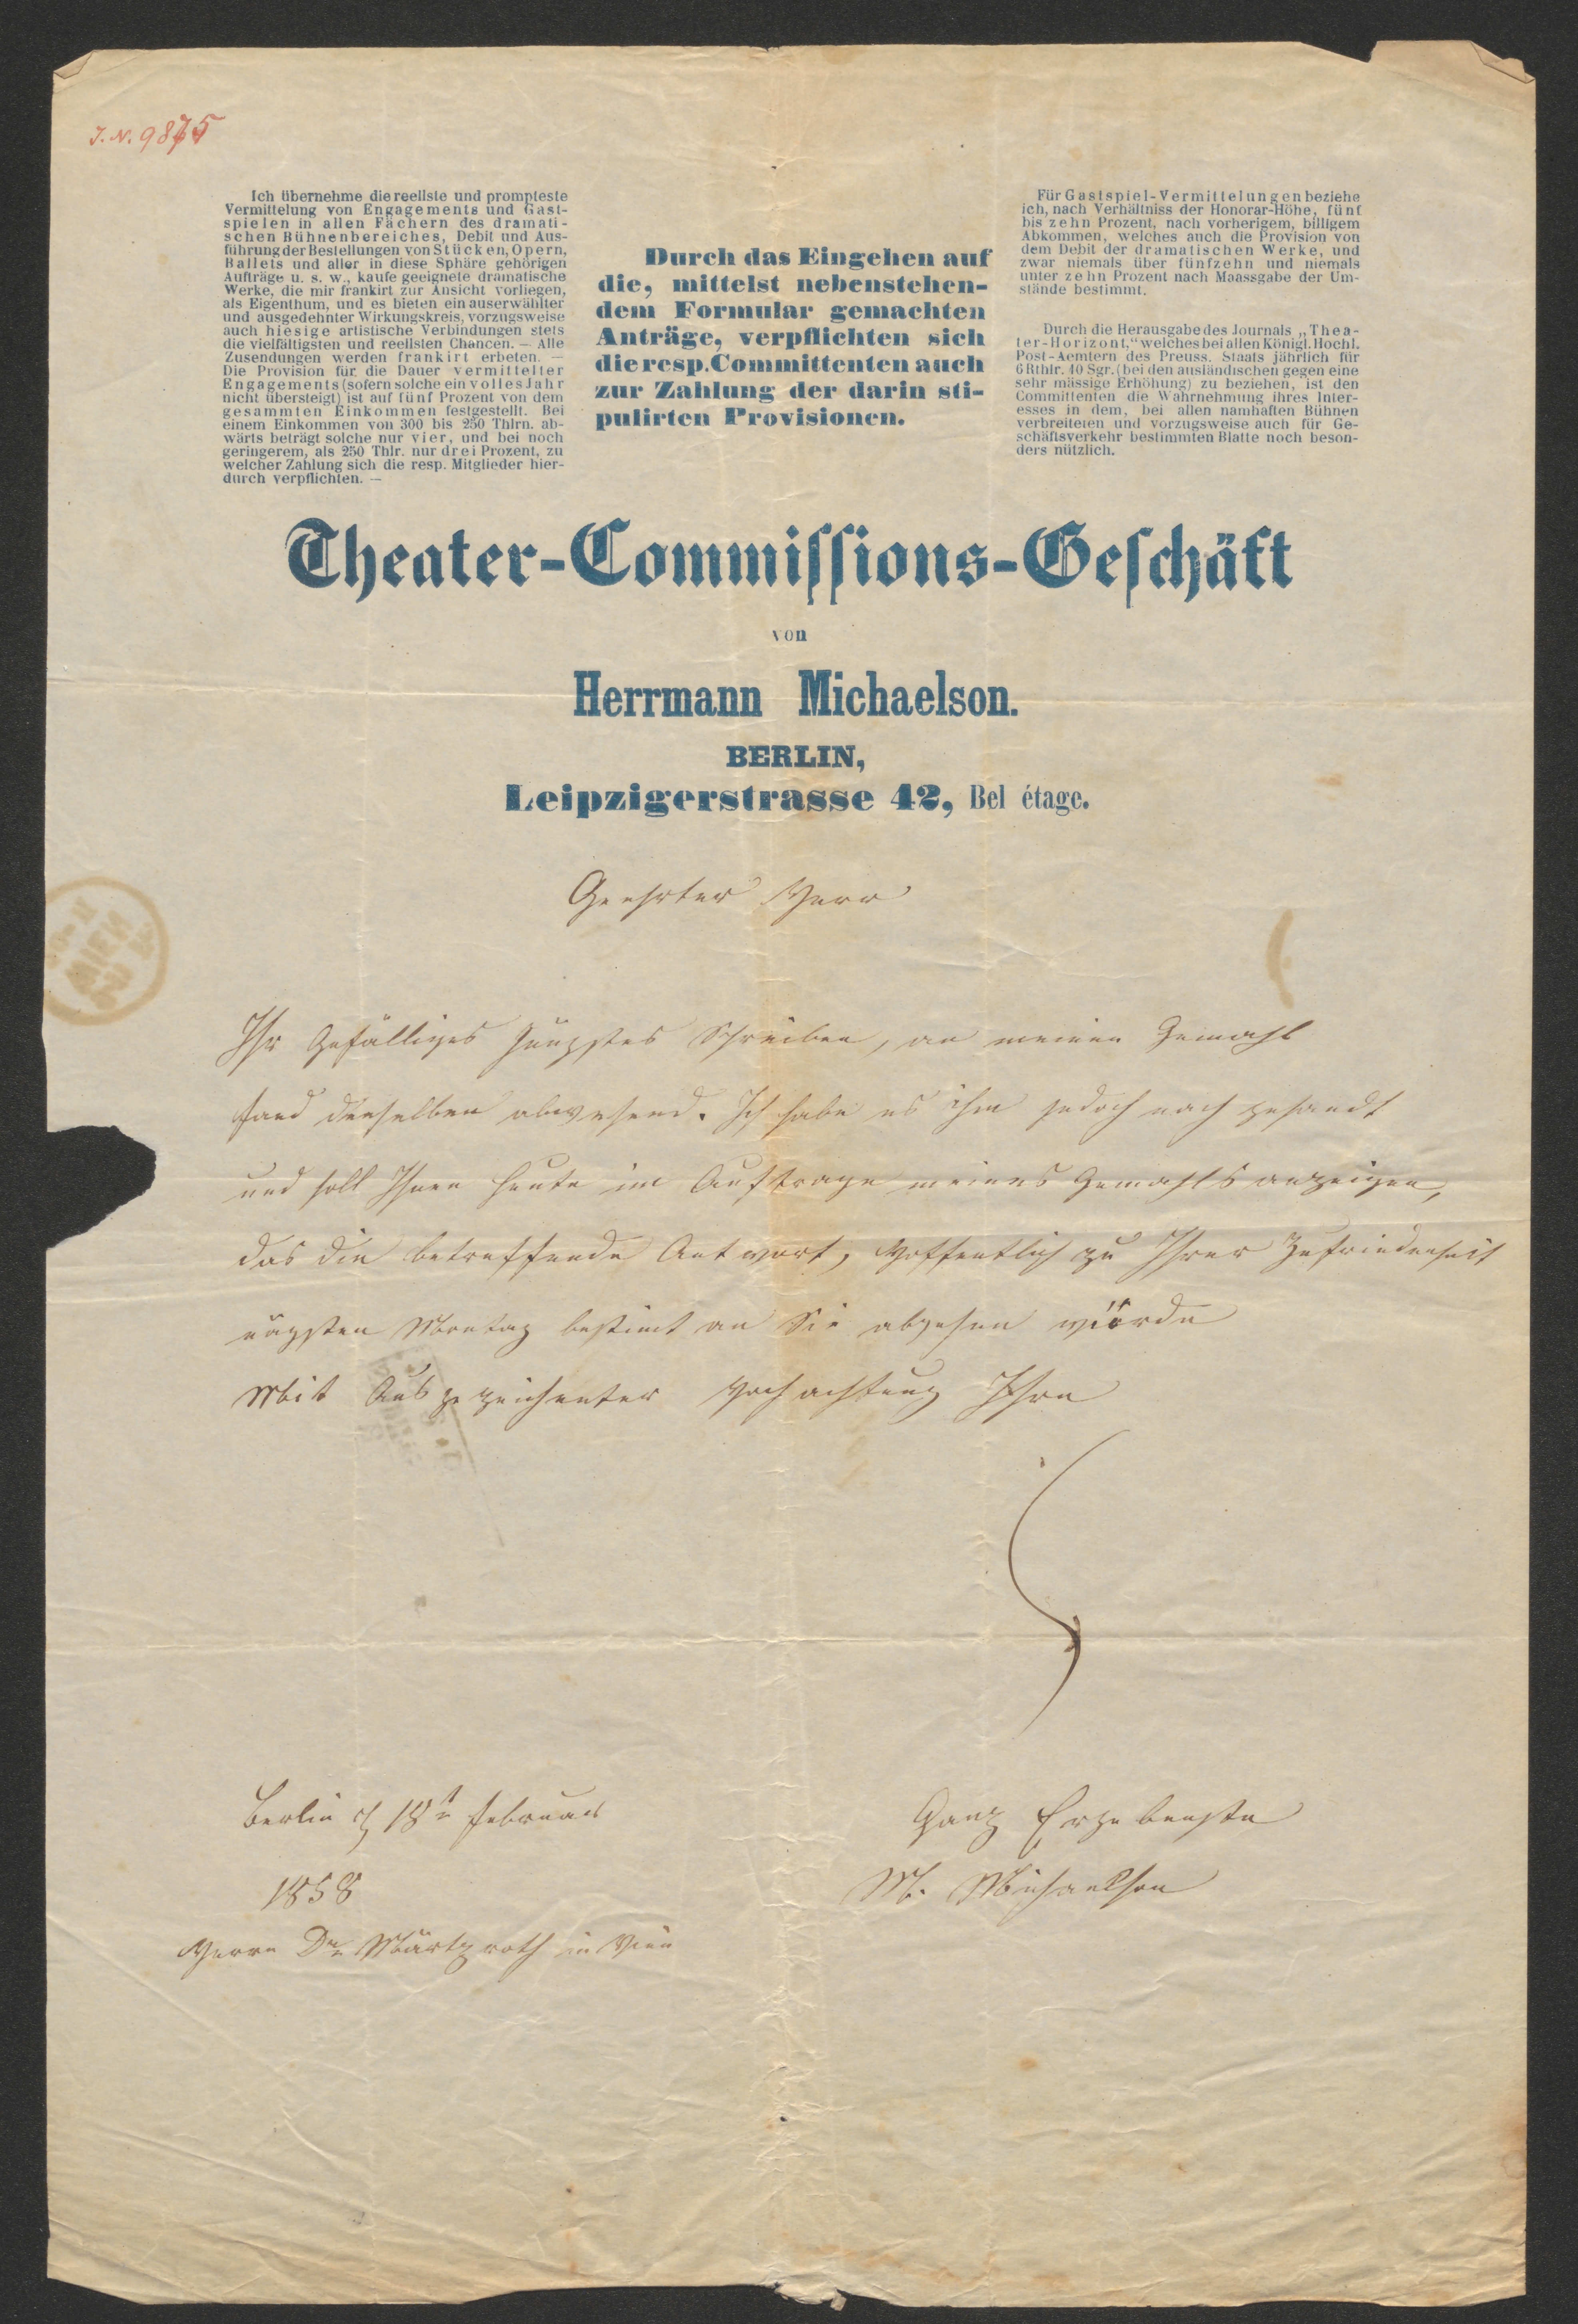 J. N. 9875
Ich übernehme die reellste und prompteste
Vermittelung von Engagements und Gast-
spielen in allen Fächern des dramati-
schen Bühnenbereiches, Debit und Aus-
führung der Bestellungen von Stücken, Opern,
Ballets und aller in diese Sphäre gehörigen
Aufträge u. s. w., kaufe geeignete dramatische
Werke, die mir frankirt zur Ansicht vorliegen,
als Eigenthum, und es bieten ein auserwählter
und ausgedehnter Wirkungskreis, vorzugsweise
auch hiesige artistische Verbindungen stets
die vielfältigsten und reellsten Chancen. — Alle
Zusendungen werden frankirt erbeten. —
Die Provision für die Dauer vermittelter
Engagements (sofern solche ein volles Jahr
nicht übersteigt) ist auf fünf Prozent von dem
gesammten Einkommen festgestellt. Bei
einem Einkommen von 300 bis 250 Thlrn. ab-
wärts beträgt solche nur vier, und bei noch
geringerem, als 250 Thlr. nur drei Prozent, zu
welcher Zahlung sich die resp. Mitglieder hier-
durch verpflichten. —
Durch das Eingehen auf
die, mittelst nebenstehen-
dem Formular gemachten
Anträge, verpflichten sich
die resp. Committenten auch
zur Zahlung der darin sti-
pulirten Provisionen.
Für Gastspiel-Vermittelungen beziehe
ich, nach Verhältniss der Honorar-Höhe, fünf
bis zehn Prozent, nach vorherigem, billigem
Abkommen, welches auch die Provision von
dem Debit der dramatischen Werke, und
zwar niemals über fünfzehn und niemals
unter zehn Prozent nach Maassgabe der Um-
stände bestimmt.
Durch die Herausgabe des Journals „Thea-
ter-Horizont,“ welches bei allen Königl. Hochl.
Post-Aemtern des Preuss. Staats jährlich für
6 Rthlr. 10 Sgr. (bei den ausländischen gegen eine
sehr mässige Erhöhung) zu beziehen, ist den
Committenten die Wahrnehmung ihres Inter-
esses in dem, bei allen namhaften Bühnen
verbreiteten und vorzugsweise auch für Ge-
schäftsverkehr bestimmten Blatte noch beson-
ders nützlich.
Theater-Commiſſions-Geſchäft
von
Herrmann Michaelson.
BERLIN,
Leipzigerstrasse 42, Bel étage.
Geehrter Herr
WIEN
Ihr Gefälliges jüngstes Schreiben, an meinen Gemahl
fand denselben abwesend. Ich habe es ihm jedoch nach gesandt
und soll Ihnen heute im Auftrage meines Gemahls anzeigen,
das die betreffende Antwort, Hoffentlich zu Ihrer Zufriedenheit
nägsten Montag bestimt an Sie abgehen würde
Mit Aus gezeichenter Hoch achtung Ihre
Berlin d 18t Februar
1858
Ganz Ergebenste
M. Michaelson
Herrn Dr Märtzroth in Wien